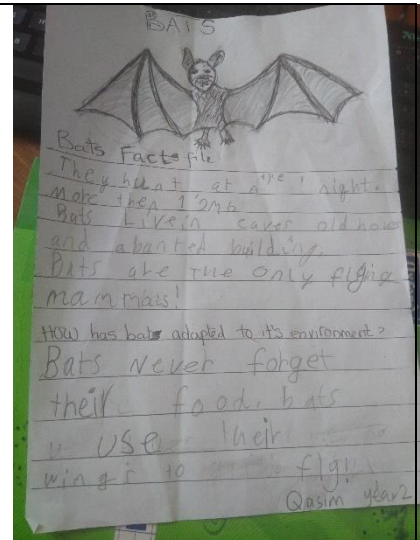 BATS
Bats Facts file
They hunt at night.
More then
Bats Live in caves old
and abanted building.
Bats are The only
mammals!
How has bats adapted to it's environment?
Bats Never forget
their food. bats
use their
wings to
Qasim year2